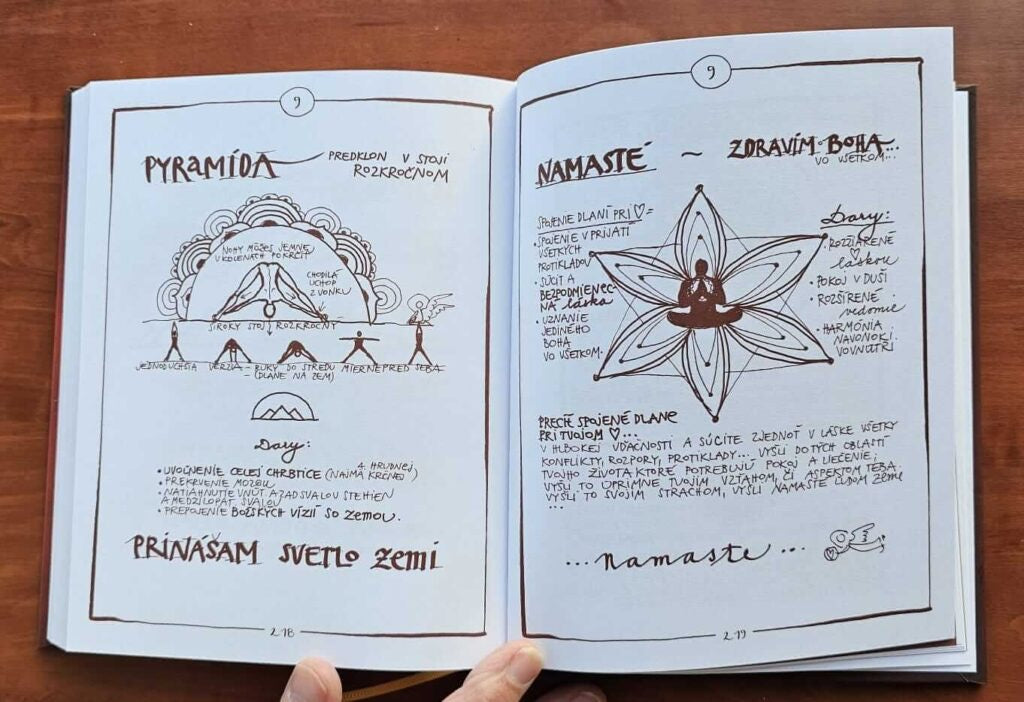 9
PYRAMÍDA
PREDKLON V STOJI
ROZKROČNOM
NOHY MÔŽEŠ JEMNE
V KOLENÁCH POKRČIŤ
CHODIDLÁ
ÚCHOP
ZVONKU
ŠIROKÝ STOJ ROZKROČNÝ
JEDNODUCHŠIA VERZIA - RUKY DO STREDU MIERNE PRED SEBA
- (DLANE NA ZEM)
Dary:
• UVOĽNENIE CELEJ CHRBTICE (NAJMÄ KRČNEJ
A HRUDNEJ)
• PREKRVENIE MOZGU
• NATIAHNUTIE VNÚT. A ZAD. SVALOV STEHIEN
A MEDZILOPAT. SVALOV
• PREPOJENIE BOŽSKÝCH VÍZIÍ SO ZEMOU.
PRINÁŠAM SVETLO ZEMI
218
9
NAMASTÉ ~ ZDRAVÍM BOHA...
VO VŠETKOM...
SPOJENIE DLANÍ PRI ♡ =
• SPOJENIE V PRIJATÍ
VŠETKÝCH
PROTIKLADOV
• SÚCIT A
BEZPODMIENEČ-
NÁ láska
• UZNANIE
JEDINÉHO
BOHA
VO VŠETKOM.
Dary:
• ROZŽIARENÉ
♡ láskou
• POKOJ V DUŠI
• ROZŠÍRENÉ
vedomie
• HARMÓNIA
NAVONOK I
VOVNÚTRI
PRECÍŤ SPOJENÉ DLANE
PRI TVOJOM ♡...
V HLBOKEJ VĎAČNOSTI A SÚCITE ZJEDNOŤ V LÁSKE VŠETKY
KONFLIKTY, ROZPORY, PROTIKLADY... VYŠLI DO TÝCH OBLASTÍ
TVOJHO ŽIVOTA KTORÉ POTREBUJÚ POKOJ A LIEČENIE;
VYŠLI TO ÚPRIMNE TVOJIM VZŤAHOM, ČI ASPEKTOM TEBA.
VYŠLI TO SVOJIM STRACHOM, VYŠLI NAMASTE ĽUĎOM ZEME
...
... namaste ...
219